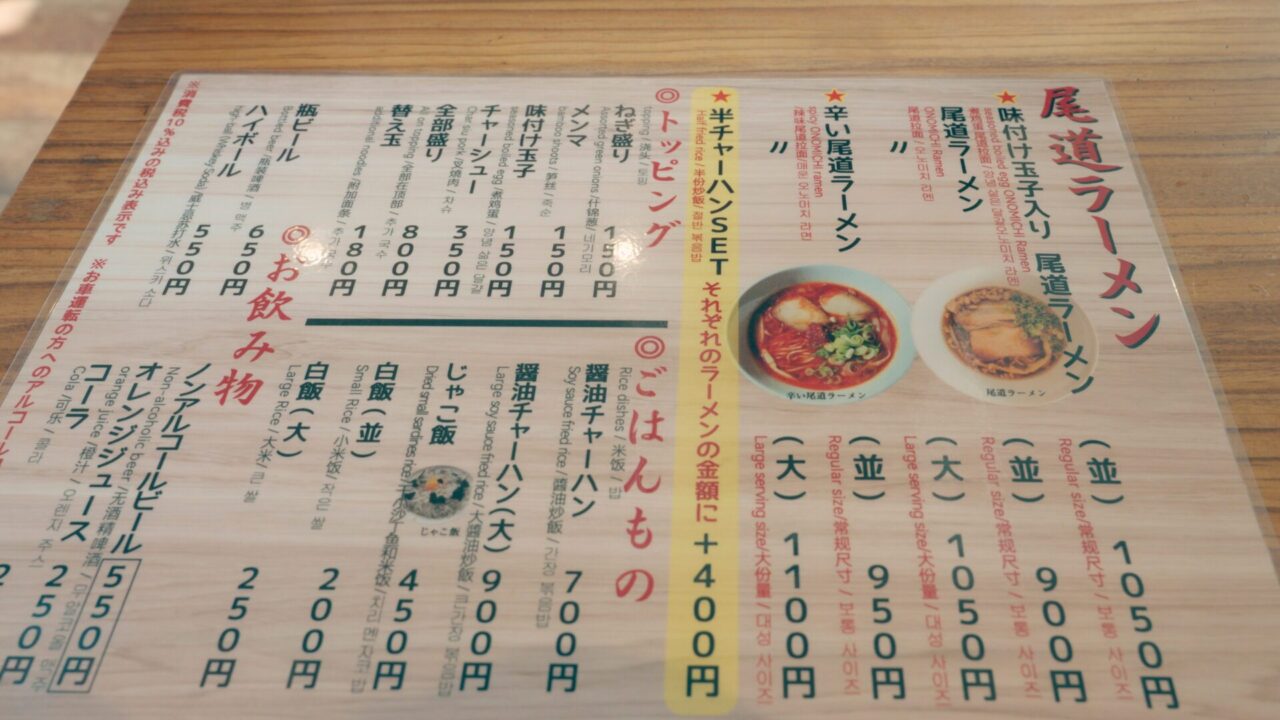 尾道ラーメン
★味付け玉子入り 尾道ラーメン （並） 1050円
seasoned boiled egg ONOMICHI Ramen
Regular size/常规尺寸 / 보통 사이즈
尾道ラーメン （並） 900円
ONOMICHI Ramen
尾道拉面 / 오노미치 라멘
Regular size/常规尺寸 / 보통 사이즈
〃 （大） 1050円
Large serving size/大份量 / 대성 사이즈
★辛い尾道ラーメン （並） 950円
spicy ONOMICHI ramen
辣味尾道拉面/매운 오노미치 라면
Regular size/常规尺寸 / 보통 사이즈
〃 （大） 1100円
Large serving size/大份量 / 대성 사이즈
尾道ラーメン
辛い尾道ラーメン
★半チャーハンSET それぞれのラーメンの金額に＋400円
Half fried rice / 半份炒飯 / 절반 볶음밥
◎トッピング
topping / 浇头 / 토핑
ねぎ盛り 150円
Assorted green onions /什锦葱/ 네기모리
メンマ 150円
bamboo shoots / 笋丝 / 죽순
味付け玉子 150円
seasoned boiled egg /煮鸡蛋/
チャーシュー 350円
Char siu pork /叉燒肉 / 차슈
全部盛り 800円
All on topping /全部在顶部 /
替え玉 180円
additional noodles /附加面条 /
◎ごはんもの
Rice dishes / 米饭 / 밥
醤油チャーハン 700円
Soy sauce fried rice / 醬油炒飯 / 간장 볶음밥
醤油チャーハン（大） 900円
Large soy sauce fried rice / 大醬油炒飯 / 큰간장 볶음밥
じゃこ飯 450円
Dried small sardines
じゃこ飯
白飯（並） 200円
Small Rice / 小米饭/ 작은 쌀
白飯（大） 250円
Large Rice / 大米 / 큰 쌀
◎お飲み物
瓶ビール 650円
ハイボール 550円
ノンアルコールビール 550円
Non-alcoholic beer /无酒精啤酒 /
オレンジジュース 250円
orange juice /橙汁 / 오렌지 주스
コーラ
Cola /可乐 / 콜라
※消費税10％込みの税込み表示です ※お車運転の方へのアルコール